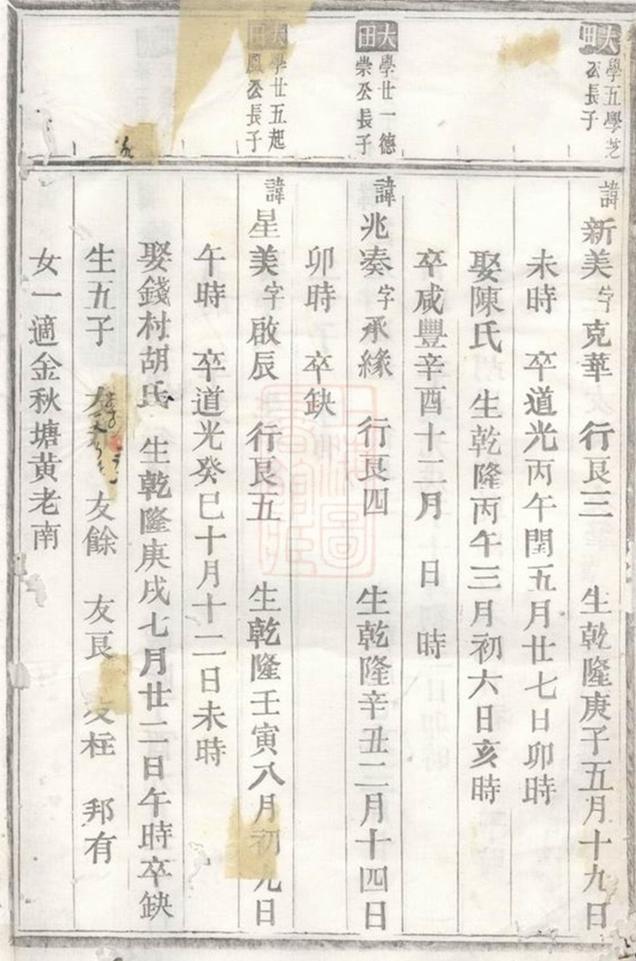 大田
學五學芝
公長子
諱新美字克華 行艮三 生乾隆庚子五月十九日
未時 卒道光丙午閏五月廿七日卯時
娶陳氏 生乾隆丙午三月初六日亥時
卒咸豐辛酉十二月 日 時
大田
學廿一德
崇公長子
諱兆奏字承緣 行艮四 生乾隆辛丑二月十四日
卯時 卒缺
大田
學廿五起
鳳公長子
諱星美字啟辰 行艮五 生乾隆壬寅八月初九日
午時 卒道光癸巳十月十二日未時
娶錢村胡氏 生乾隆庚戌七月廿二日午時卒缺
生五子 友餘 友艮 友柱 邦有
女一適金秋塘黃老南